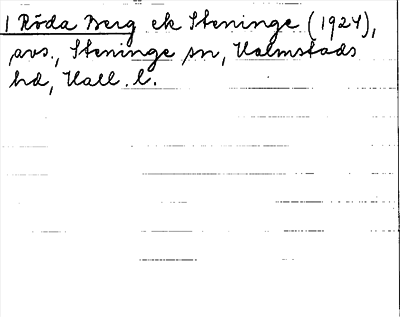 1 Röda Berg ek Steninge (1924),
avs., Steninge sn, Halmstads
hd, Hall. l.